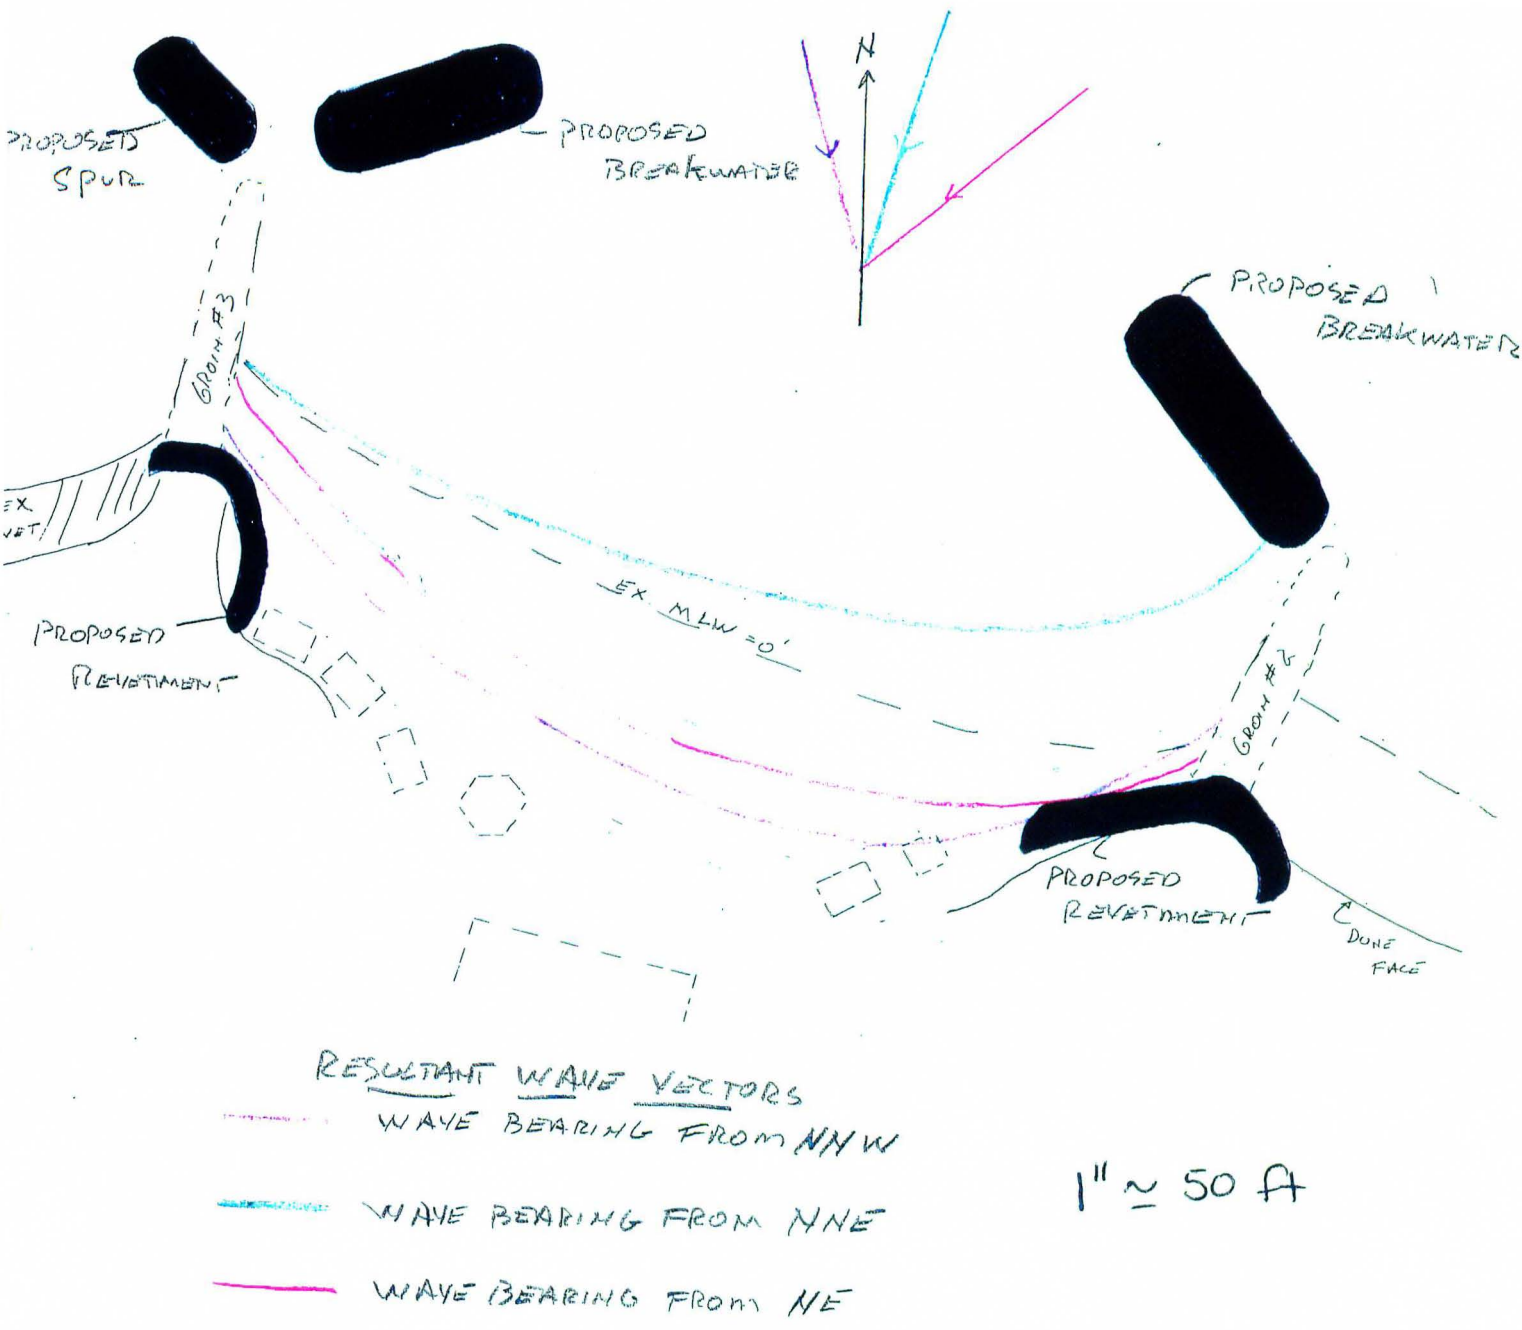 N
PROPOSED
SPUR
PROPOSED
BREAKWATER
PROPOSED
BREAKWATER
GROIN #3
EX
EX. MLW = 0'
GROIN #2
PROPOSED
REVETMENT
PROPOSED
REVETMENT
DUNE
FACE
RESULTANT WAVE VECTORS
WAVE BEARING FROM NNW
WAVE BEARING FROM NNE
WAVE BEARING FROM NE
1" ≃ 50 ft